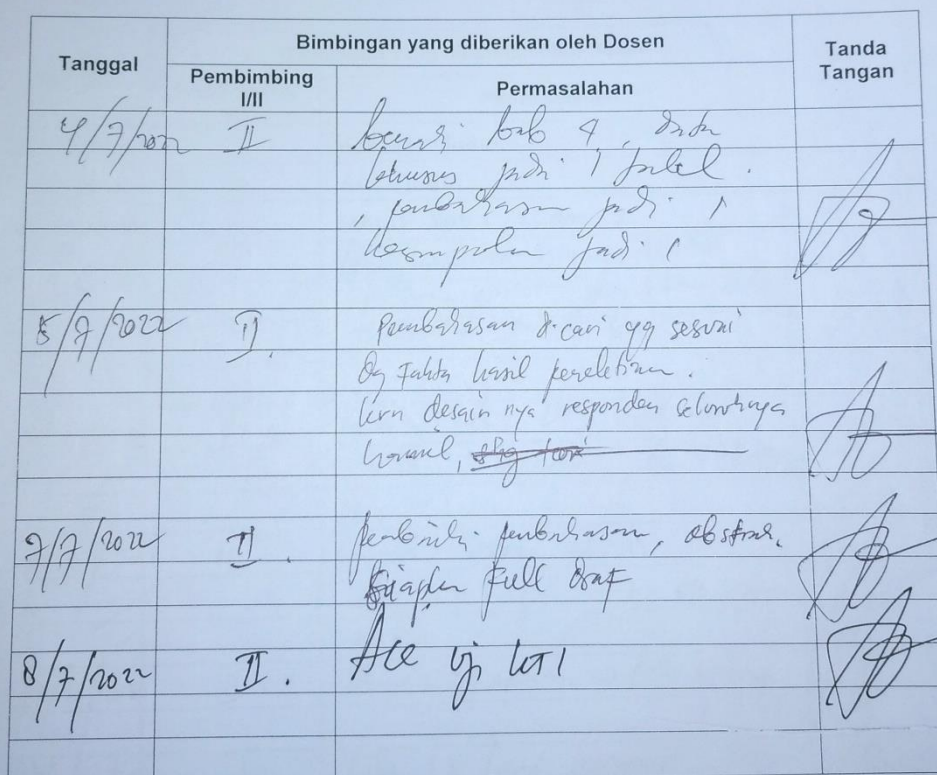 Tanggal
Bimbingan yang diberikan oleh Dosen
Tanda
Tangan
Pembimbing
I/II
Permasalahan
4/7/2022 II bab 4, data
khusus jadi 1 tabel.
, pembahasan jadi 1
kesimpulan jadi 1
5/7/2022 II. Pembahasan dicari yg sesuai
dg fakta hasil penelitian.
krn desain nya responden seluruhnya
hamil,
7/7/2022 II. perbaiki pembahasan, abstrak.
siapkan full draf
8/7/2022 II. Acc uji KTI